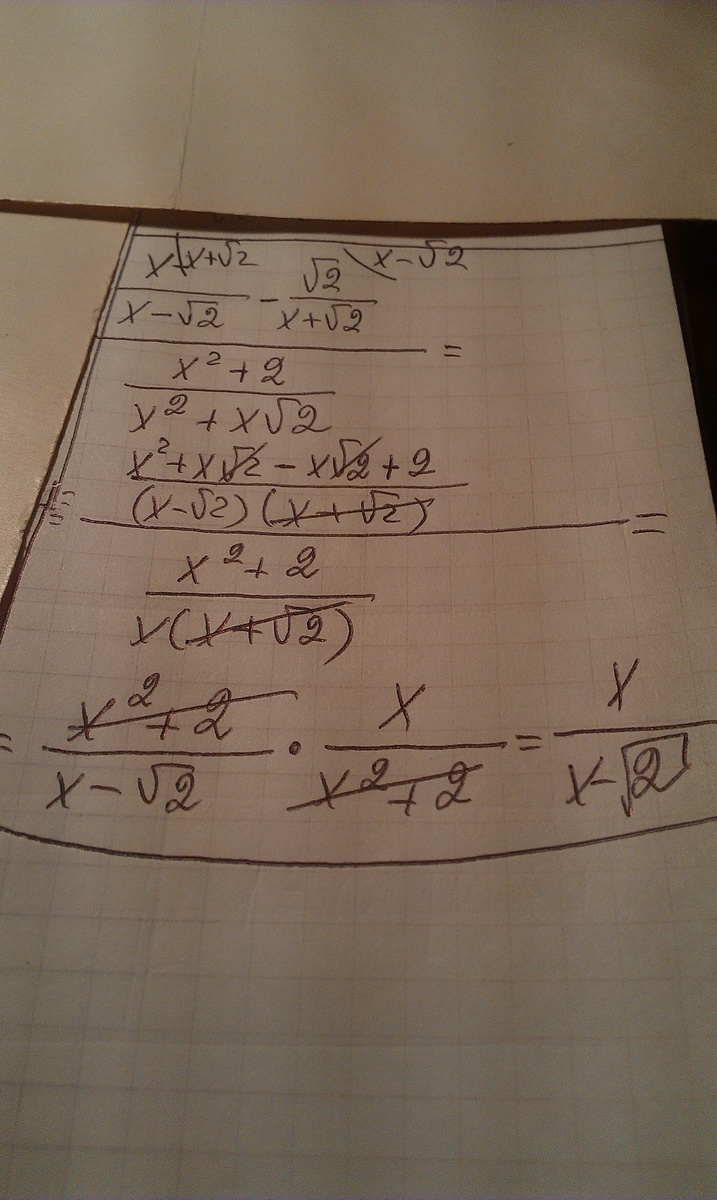 x x+√2 √2 x-√2
x-√2 - x+√2
=
x² + 2
x² + x√2
x² + x√2 - x√2 + 2
= (x-√2) (x+√2) =
x² + 2
x(x+√2)
= x² + 2 · x = x
x - √2 x² + 2 x-√2